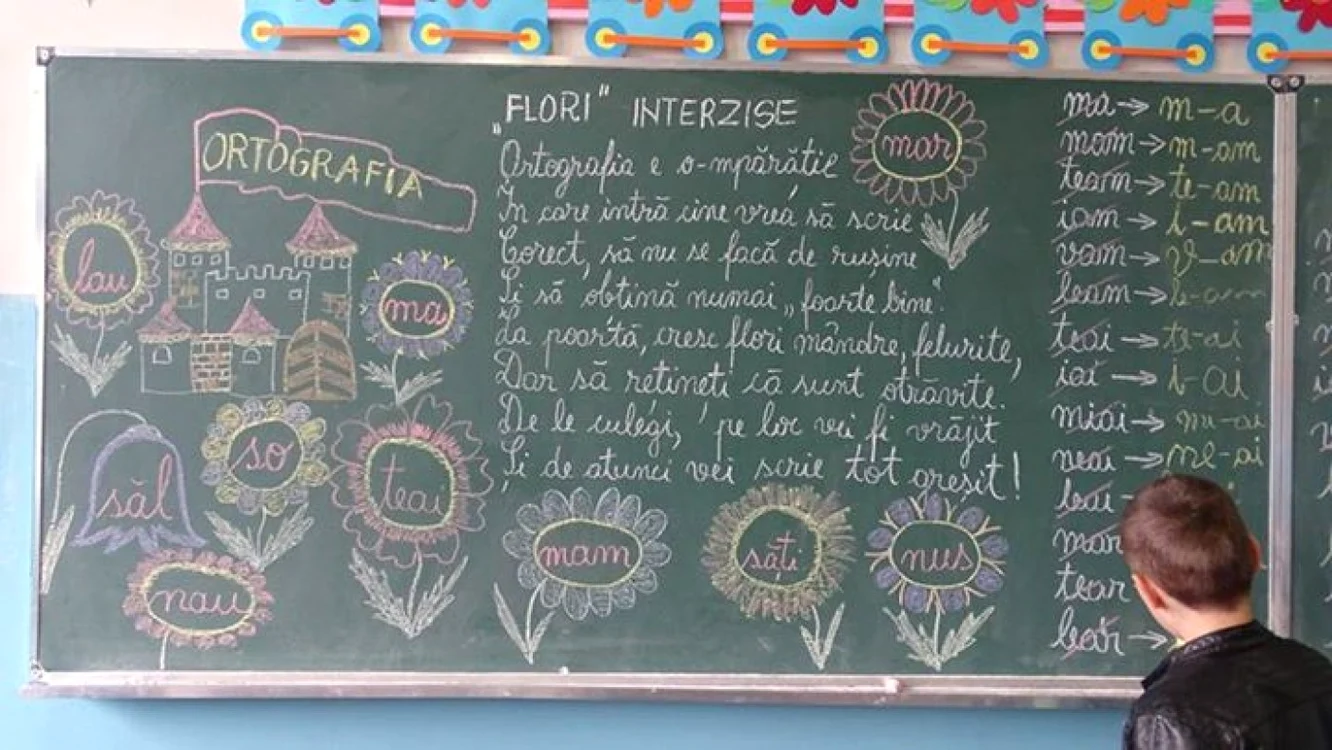 ORTOGRAFIA
lau
ma
săl
so
teai
nau
„FLORI" INTERZISE
Ortografia e o-mpărătie
În care intră cine vrea să scrie
Corect, să nu se facă de rușine
Și să obțină numai „foarte bine".
La poartă, cresc flori mândre, felurite,
Dar să rețineți că sunt otrăvite.
De le culegi, pe loc vei fi vrăjit
Și de atunci vei scrie tot greșit!
mar
mam
săți
nus
ma → m-a
mam → m-am
team → te-am
iam → i-am
vam → v-am
leam → le-am
teai → te-ai
iai → i-ai
miai → mi-ai
neai → ne-ai
leai →
mar
tear
lear →